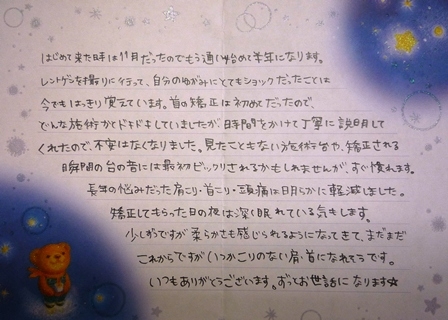 はじめて来た時は11月だったのでもう通い始めて半年になります。
レントゲンを撮りに行って、自分のゆがみにとてもショックだったことは
今でもはっきり覚えています。首の矯正は初めてだったので、
どんな施術かドキドキしていましたが、時間をかけて丁寧に説明して
くれたので、不安はなくなりました。見たこともない施術台や、矯正される
瞬間の台の音には最初ビックリされるかもしれませんが、すぐ慣れます。
長年の悩みだった肩こり・首こり・頭痛は明らかに軽減しました。
矯正してもらった日の夜は深く眠れている気もします。
少しずつですが柔らかさも感じられるようになってきて、まだまだ
これからですがいつかこりのない肩・首になれそうです。
いつもありがとうございます。ずっとお世話になります☆